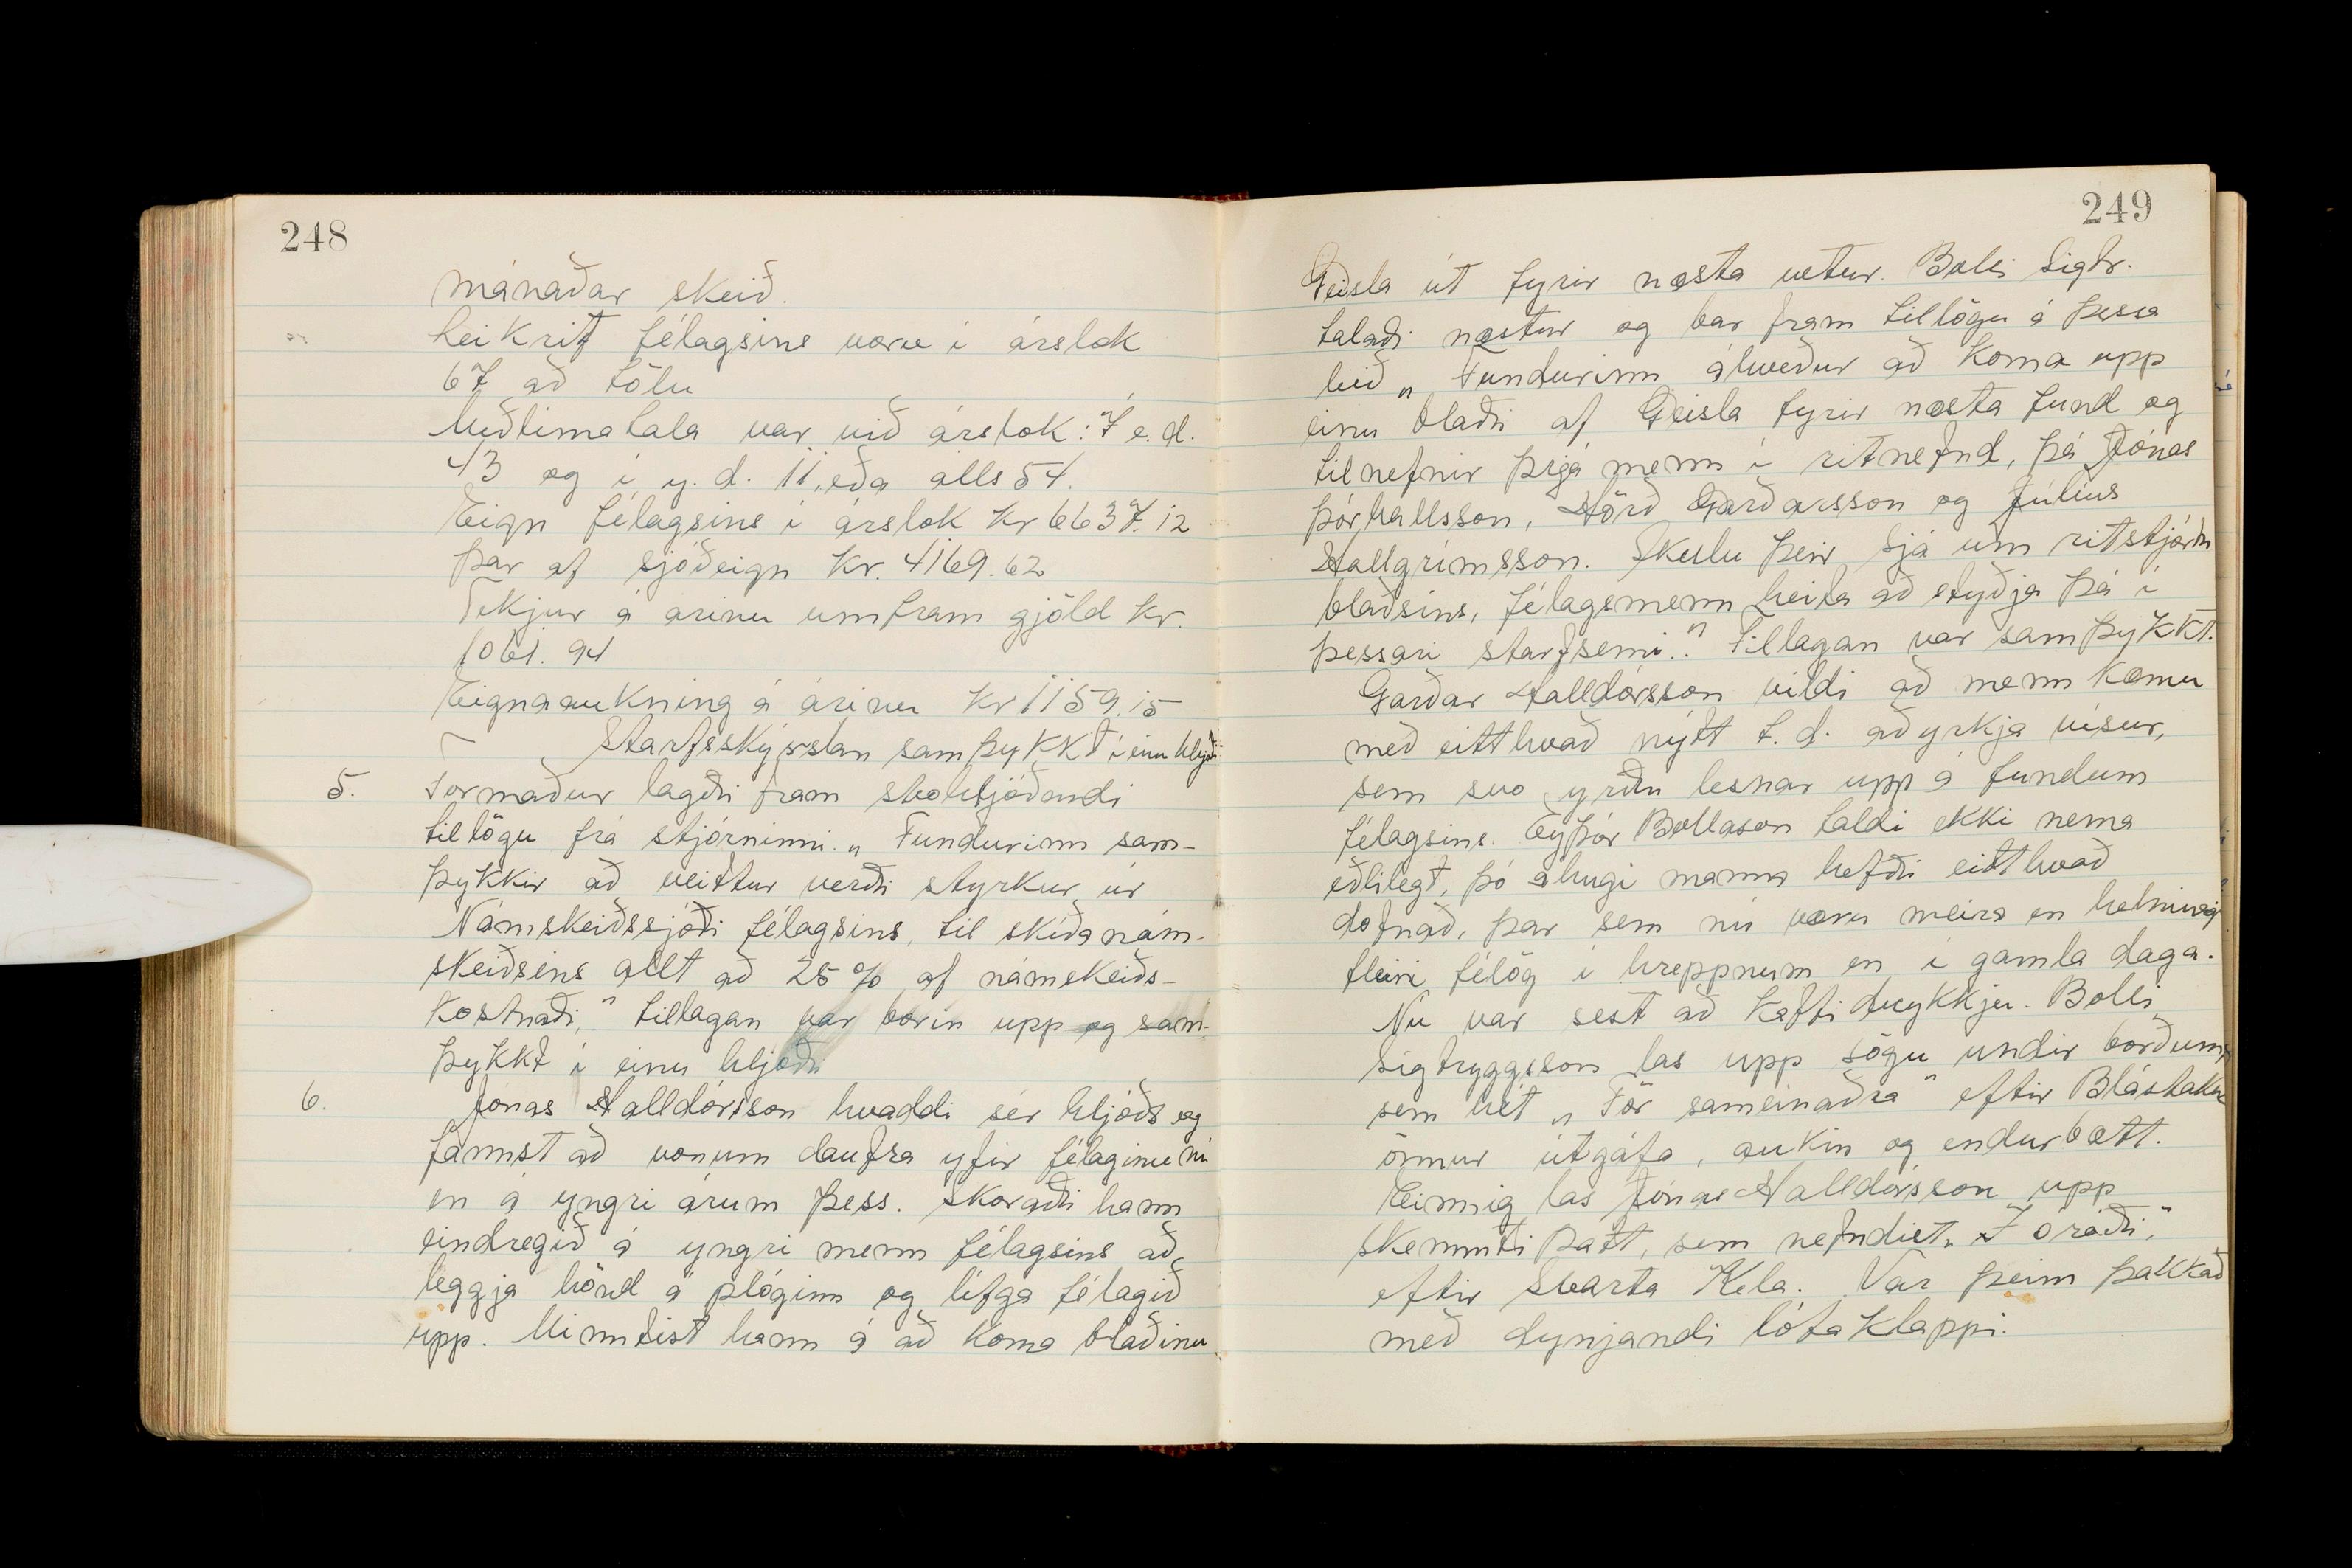 248
mánaðar skeið.
Leikrit félagsins voru í árslok
67 að tölu
Meðlimatala var við árslok: Í e.d.
43 og í y.d. 11, eða alls 54.
Eign félagsins í árslok kr 6637.12
þar af sjóðeign kr. 4169.62
Tekjur á árinu umfram gjöld kr.
1061.94
Eignaaukning á árinu kr 1159.15
Starfsskýrslan samþykkt í einu hljóði
5. Formaður lagði fram svohljóðandi
tillögu frá stjórninni. „Fundurinn sam-
þykkir að veittur verði styrkur úr
Námskeiðssjóði félagsins, til skíðanám-
skeiðsins allt að 25% af námskeiðs-
kostnaði," tillagan var borin upp og sam-
þykkt í einu hljóði
6. Jónas Halldórsson kvaddi sér hljóðs og
fannst að vonum daufra yfir félaginu nú
en á yngri árum þess. Skoraði hann
eindregið á yngri menn félagsins að
leggja hönd á plóginn og lífga félagið
upp. Minntist hann á að koma blaðinu
249
Geisla út fyrir næsta vetur. Bolli Sigtr.
talaði næstur og bar fram tillögu á þessa
leið „Fundurinn ákveður að koma upp
einu blaði af Geisla fyrir næsta fund og
tilnefnir þrjá menn í ritnefnd, þá Jónas
Þórhallsson, Hörð Garðarsson og Júlíus
Hallgrímsson. Skulu þeir sjá um ritstjórn
blaðsins, félagsmenn heita að styðja þá í
þessari starfsemi." Tillagan var samþykkt.
Garðar Halldórsson vildi að menn kæmu
með eitthvað nýtt t.d. að yrkja vísur,
sem svo yrðu lesnar upp á fundum
félagsins. Eyþór Bollason taldi ekki nema
eðlilegt, þó áhugi manna hefði eitthvað
dofnað, þar sem nú væru meira en helmingi
fleiri félög í hreppnum en í gamla daga.
Nú var sest að kaffidrykkju. Bolli
Sigtryggsson las upp sögu undir borðum,
sem hét „För sameinaðra" eftir Blástakk
önnur útgáfa, aukin og endurbætt.
Einnig las Jónas Halldórsson upp
skemmti þátt, sem nefndist „Í óráði,"
eftir Svarta Kela. Var þeim þakkað
með dynjandi lófaklappi.